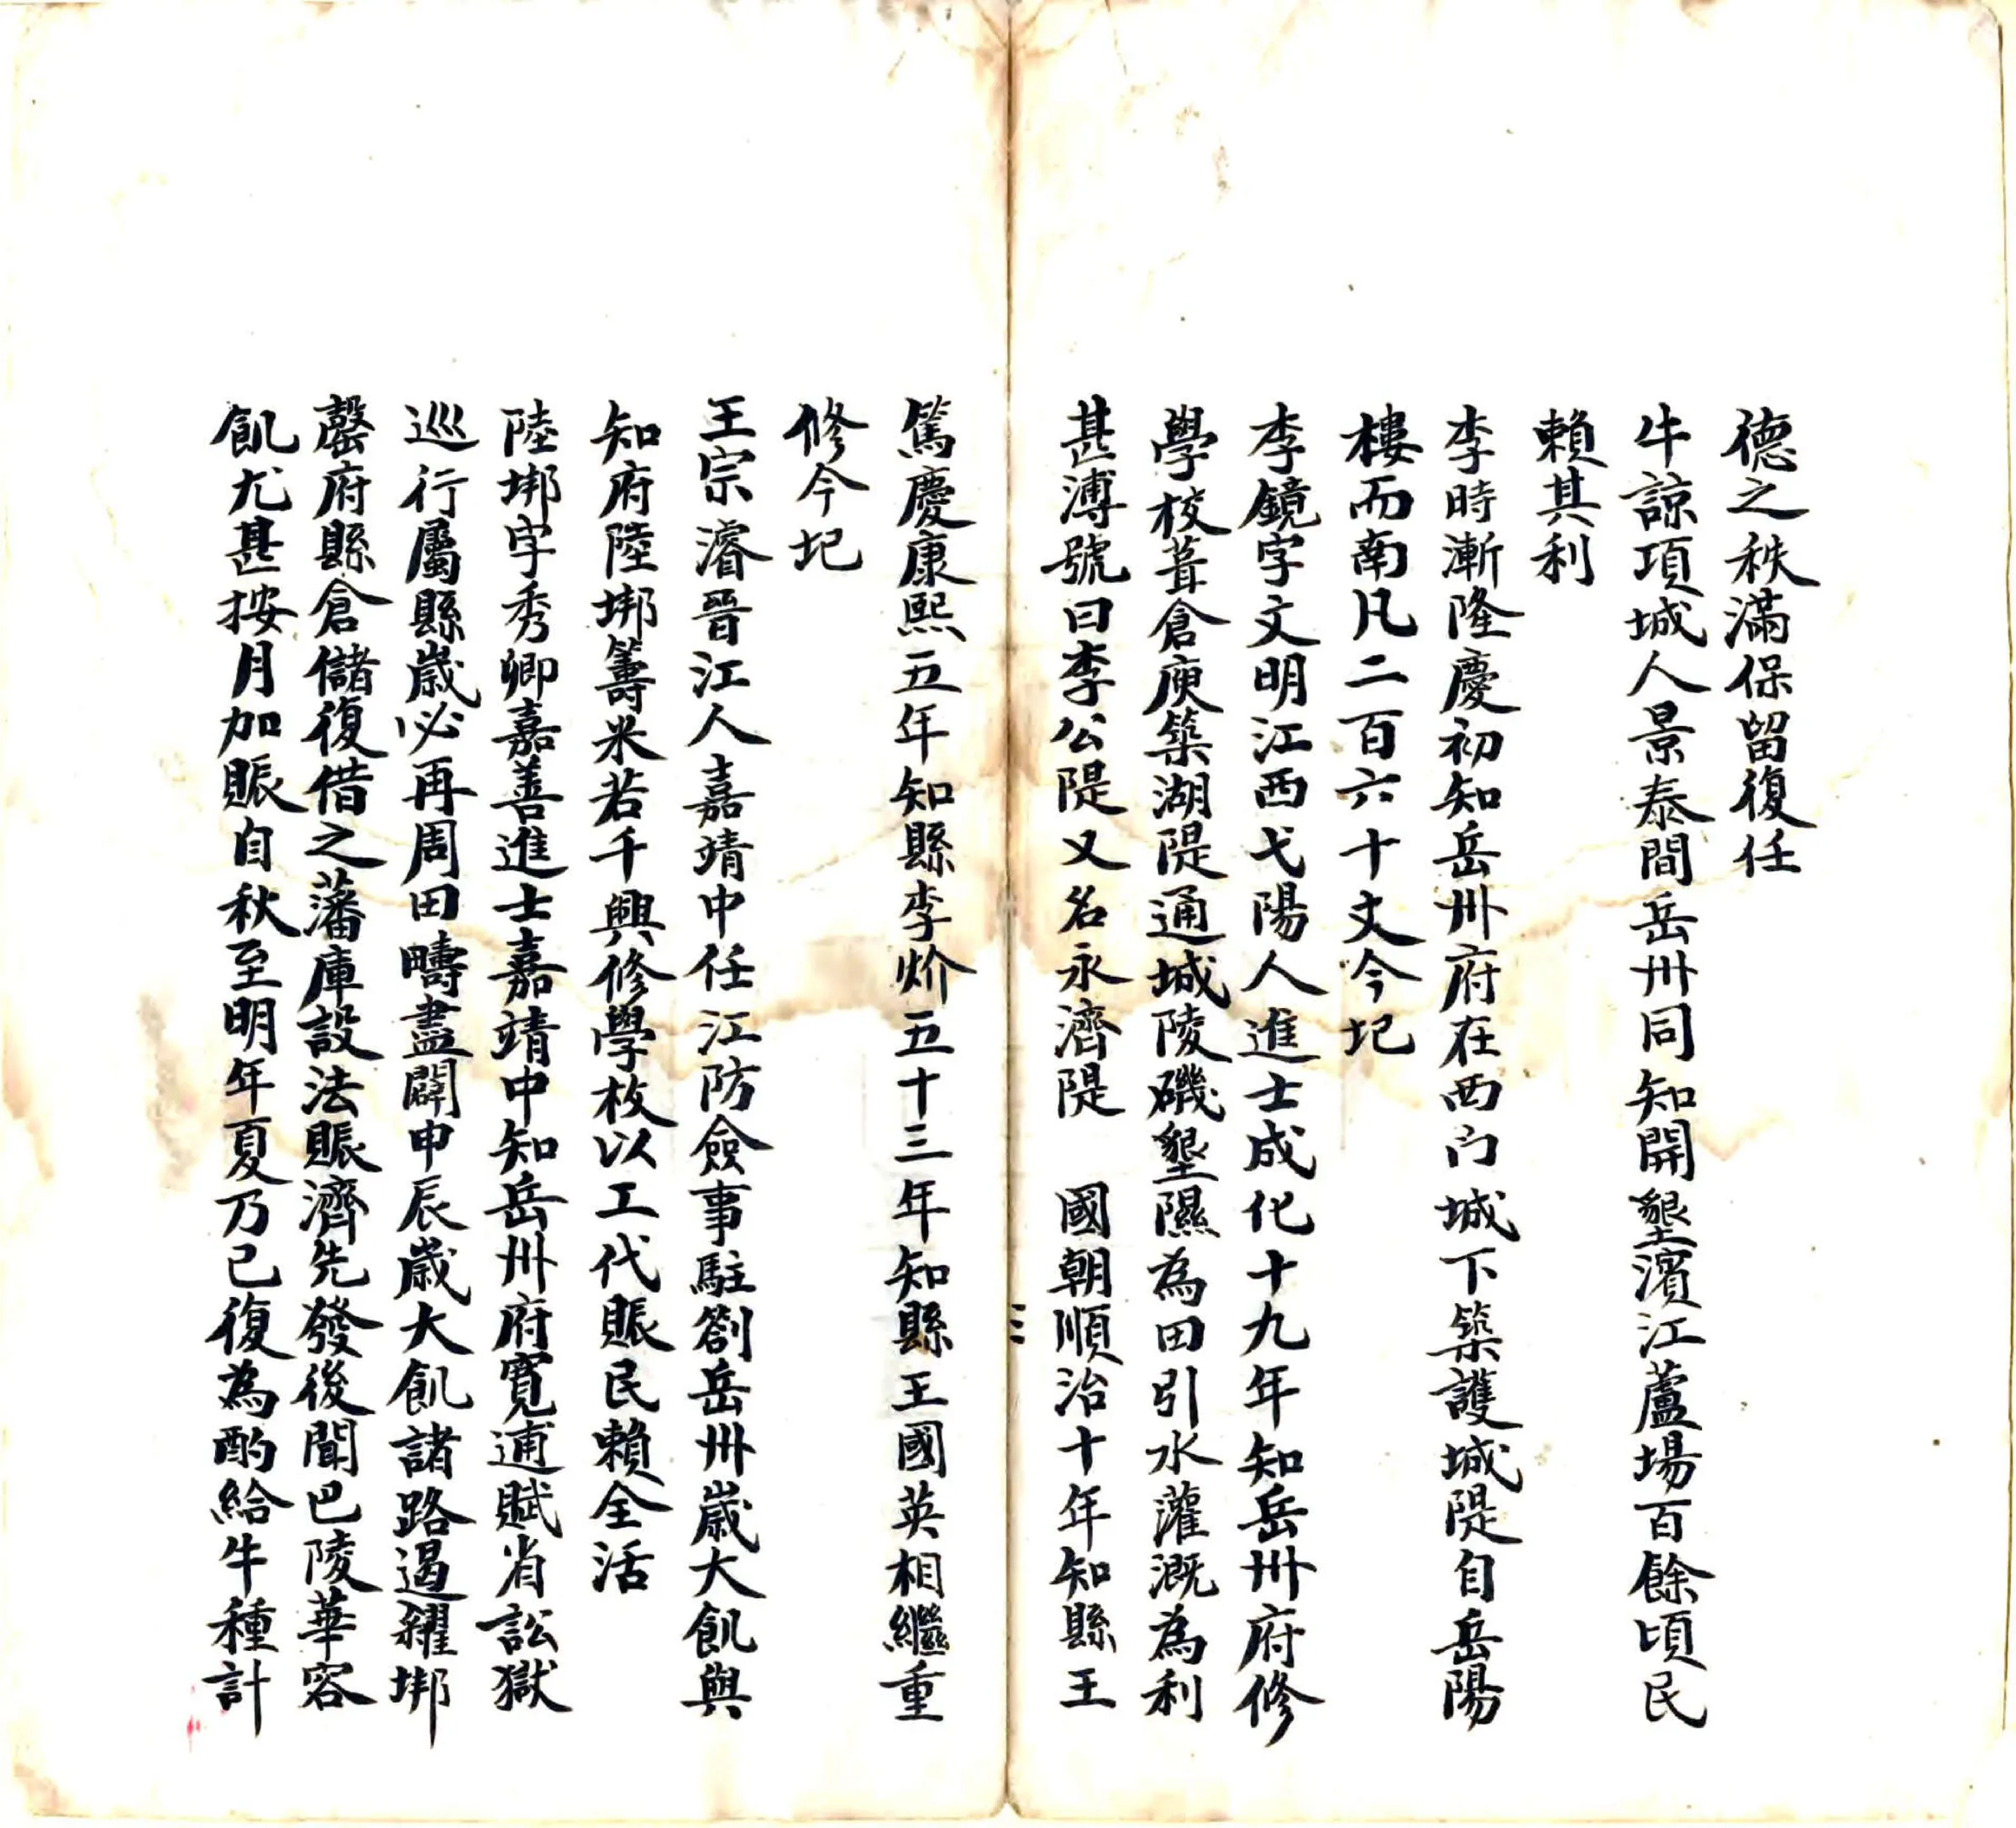 德之秩滿保留復任
牛諒項城人景泰間岳州同知開墾濱江蘆場百餘頃民
賴其利
李時漸隆慶初知岳州府在西门城下築護城隄自岳陽
樓而南凡二百六十丈今圮
李鏡字文明江西弋陽人進士成化十九年知岳州府修
學校葺倉庾築湖隄通城陵磯墾隰為田引水灌溉為利
甚溥號曰李公隄又名永濟隄 國朝順治十年知縣王
篤慶康熙五年知縣李炌五十三年知縣王國英相繼重
修今圮
王宗濬晉江人嘉靖中任江防僉事駐劄岳州歲大飢與
知府陸垹籌米若千興修學校以工代賑民賴全活
陸垹字秀卿嘉善進士嘉靖中知岳州府寬逋賦省訟獄
巡行屬縣歲必再周田疇盡闢申辰歲大飢諸路遏糴垹
罄府縣倉儲復借之藩庫設法賑濟先發後聞巴陵華容
飢尤甚按月加賑自秋至明年夏乃已復為酌給牛種計